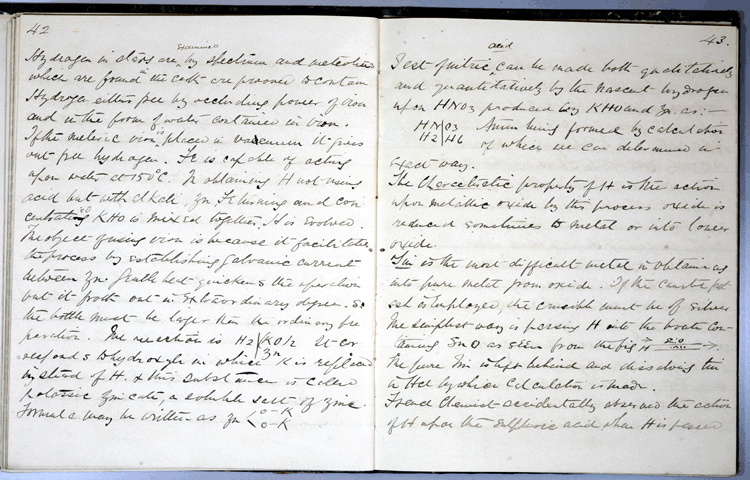 42
Hydrogen in stars are examined by spectrum and meteorites
which are found in the earth are prooved to contain
Hydrogen either free by occluding power of iron
and in the form of water contained in iron.
If the meteric iron placed in vacuum it gives
out free hydrogen. It is capable of acting
upon water at 150°C. In obtaining H not using
acid but with alkali, Zn Fe turning and con
centrated KHO is mixed together, H is evolved.
The object of using iron is because it facilitates
the process by establishing Galvanic current
between Zn. Gentle heat quickens the operation
but it froth out in extraordinary degree. So
the bottle must be larger than the ordinary pre
paration. The reaction is H2 | KO/2 It cor
Zn
responds to hydroxyle in which K is replaced
instead of H. & this substance is called
potassic zincate, a soluble salt of zinc.
Formula may be written as Zn < O-K
O-K
43.
and
Test of nitric can be made both qualitatively
and quantitatively by the nascent hydrogen
upon HNO3 produced by KHO and Zn. as:-
HN | O3 Amm being formed by calculation
H2 | H6 of which we can determined in
exact way.
The Charcetristic property of H is the action
upon metallic oxide by this process oxide is
reduced sometimes to metal or into lower
oxide.
Tin is the most difficult metal to obtain as
into pure metal from oxide. If the caustic pot
ash is employed, the crucible must be of silver.
The simplest way is passing H into the boat con
taining SnO as seen from the fig → H →
The pure Tin is left behind and dissolving tin
in HCl by which Calculation is made.
French Chemist accidentally observed the action
of H upon the sulphuric acid when H is passed